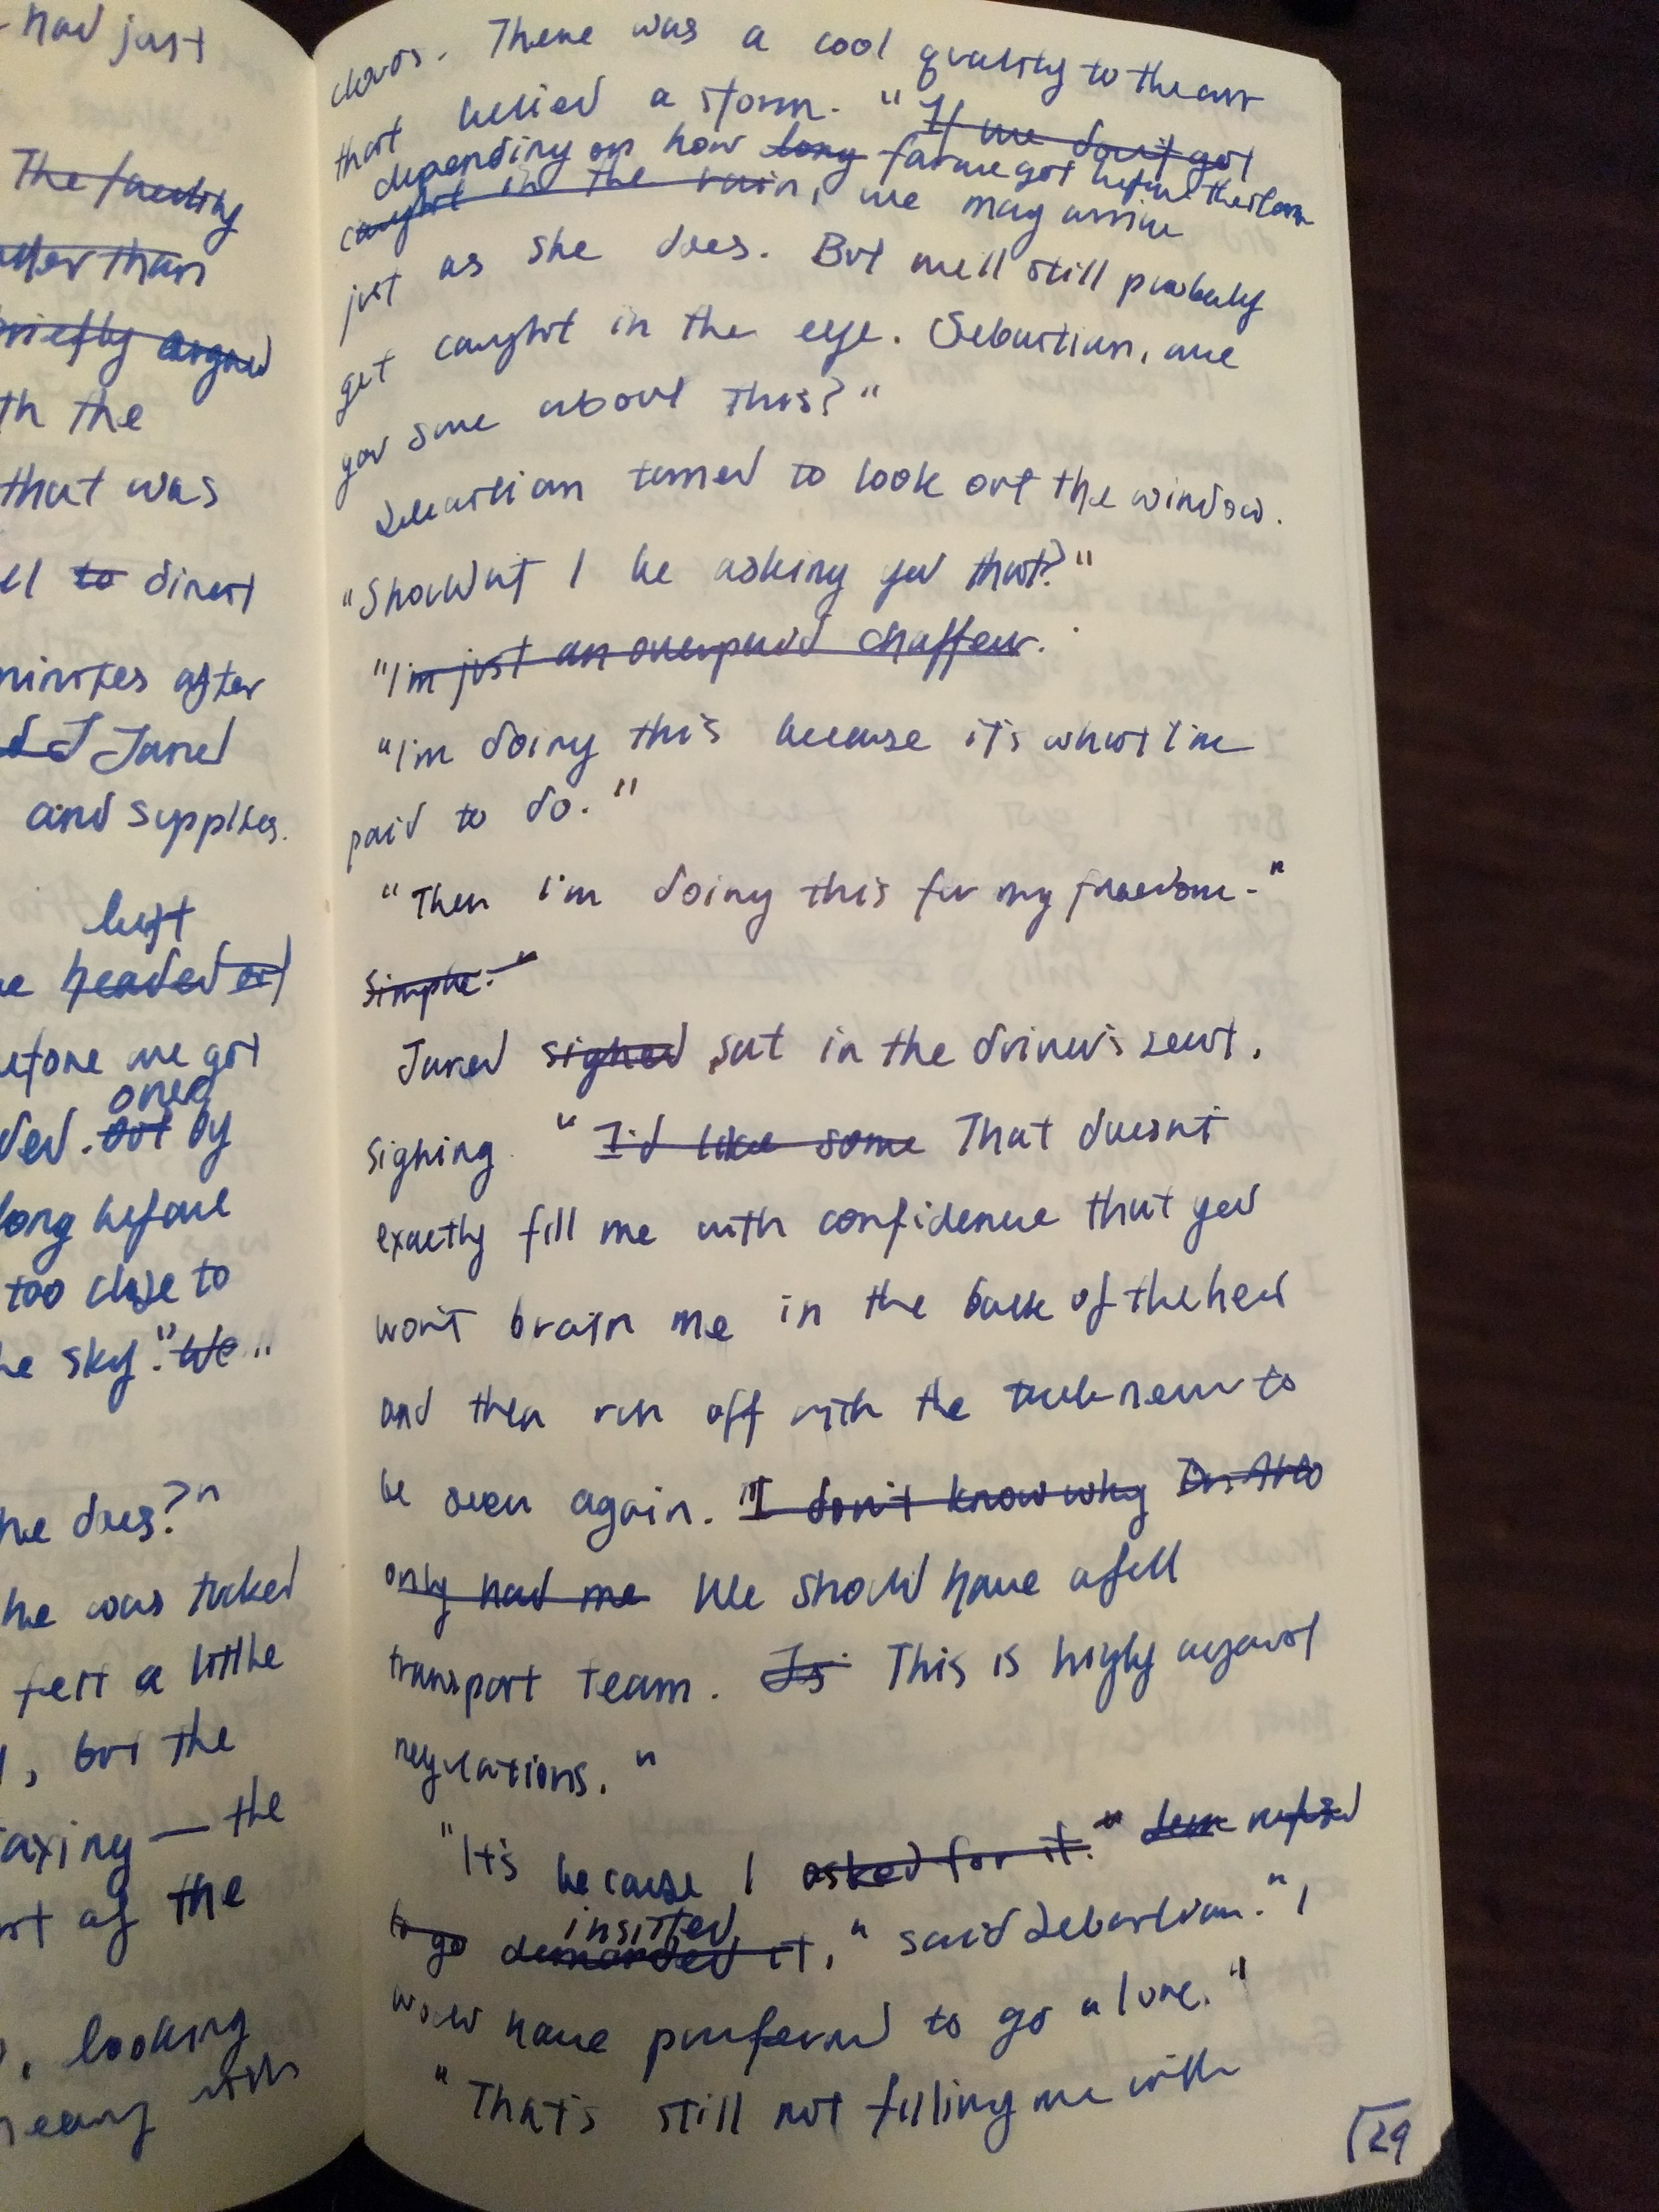 had just
The facility
rather than
briefly argued
th the
that was
el to direct
minutes after
d J Jared
and supplies.
left
e headed out
efore we got
over
ded. out by
long before
too close to
he sky." We "
he does?"
he was tucked
felt a little
, but the
axing — the
rt of the
, looking
heavy with
clouds. There was a cool quality to the air
that belied a storm. "If we don't get
depending on how long far we get before the storm
caught in the rain, we may arrive
just as she does. But we'll still probably
get caught in the eye. Sebastian, are
you sure about this?"
Sebastian turned to look out the window.
"Shouldn't I be asking you that?"
"I'm just an overpaid chaffeur.
"I'm doing this because it's what I'm
paid to do."
"Then I'm doing this for my freedom."
simple."
Jared sighed sat in the driver's seat,
sighing. "I'd like some That doesn't
exactly fill me with confidence that you
won't brain me in the back of the head
and then run off with the truck never to
be seen again. "I don't know why
only had me We should have a full
transport team. Is This is highly against
regulations."
"It's because I asked for it." refused
to go demanded it," said Sebastian. "I
insisted,
would have preferred to go alone."
"That's still not filling me with
29